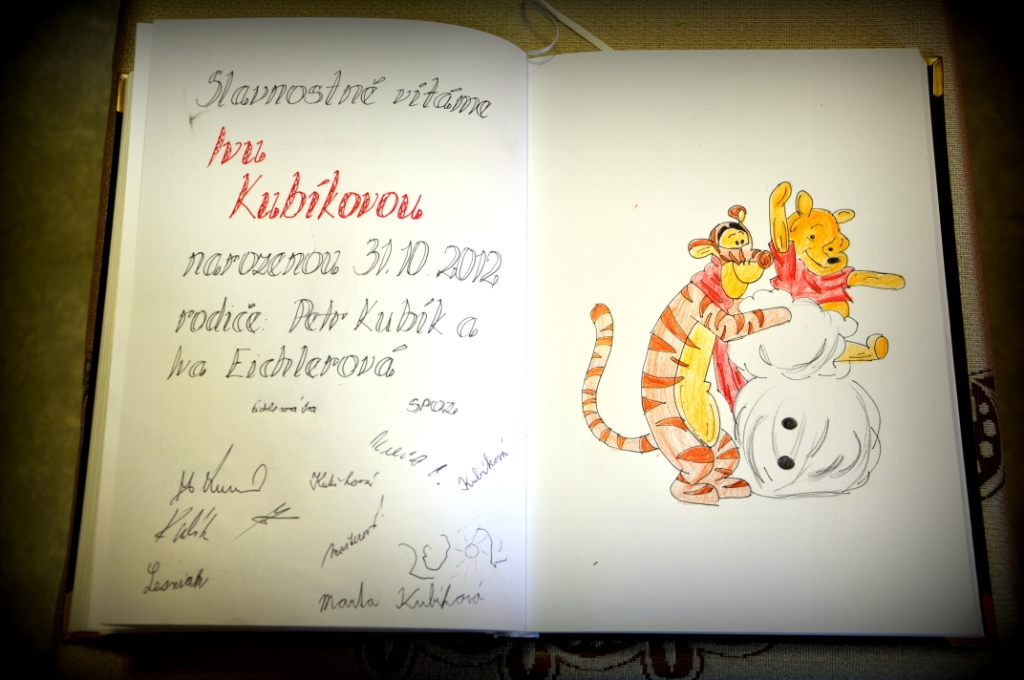 Slavnostně vítáme
Ivu
Kubíkovou
narozenou 31.10.2012
rodiče: Petr Kubík a
Iva Eichlerová
SPOZ
Kubíková
Kubíková
Kubík
Lesniak
Marta Kubíková